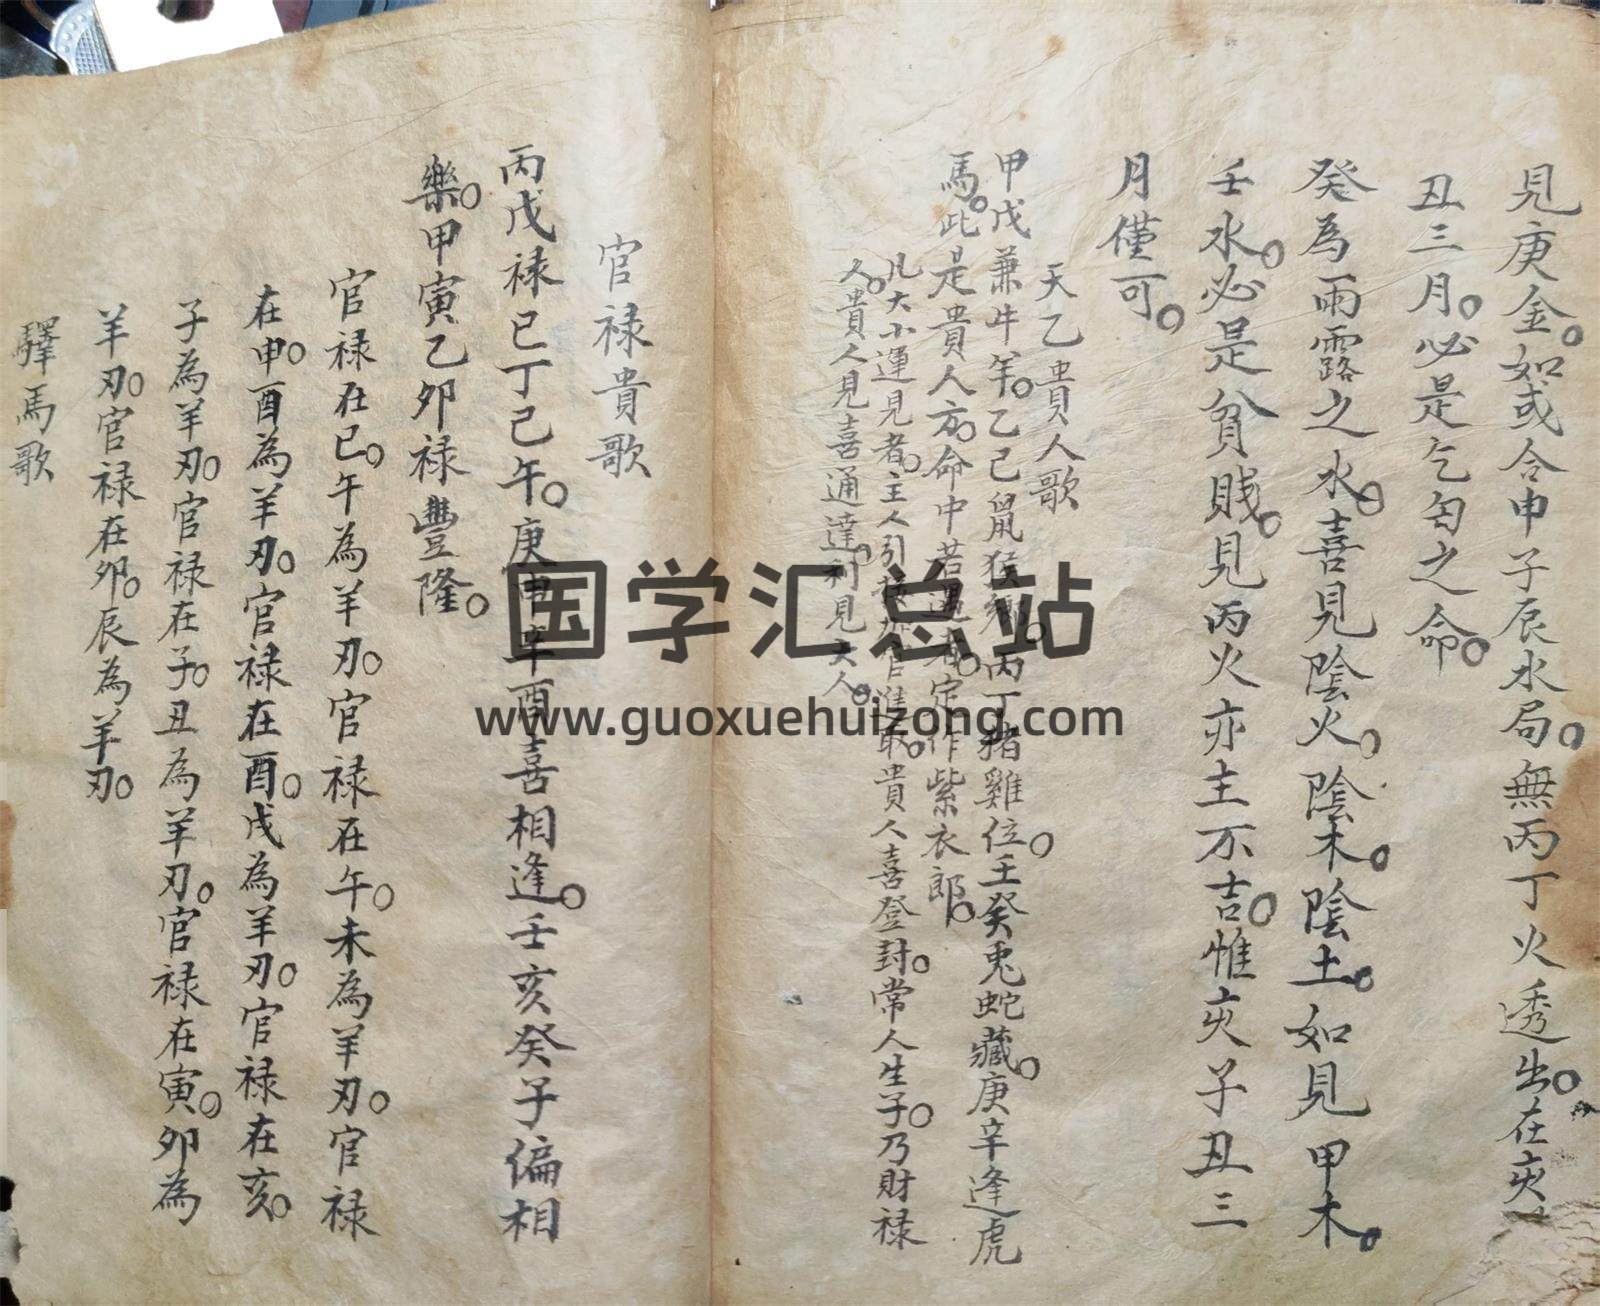 見庚金。如或合申子辰水局。無丙丁火透出。在亥
丑三月。必是乞匄之命。
癸為雨露之水。喜見陰火。陰木。陰土。如見甲木。
壬水。必是貧賤。見丙火亦主不吉。惟亥子丑三
月僅可。
天乙貴人歌
甲戊兼牛羊。乙己鼠猴鄉。丙丁猪雞位。壬癸兎蛇藏。庚辛逢虎
馬。此是貴人方。命中若遇者。定作紫衣郎。
凡大小運見者。主人引 進取。貴人喜登封。常人生子。乃財禄
人。貴人見喜通達。利見大人。
官禄貴歌
丙戊禄巳丁己午。庚申辛酉喜相逢。壬亥癸子偏相
樂。甲寅乙卯禄豐隆。
官禄在巳。午為羊刃。官禄在午。未為羊刃。官禄
在申。酉為羊刃。官禄在酉。戌為羊刃。官禄在亥。
子為羊刃。官禄在子。丑為羊刃。官禄在寅。卯為
羊刃。官禄在卯。辰為羊刃。
驛馬歌
国学汇总站
www.guoxuehuizong.com